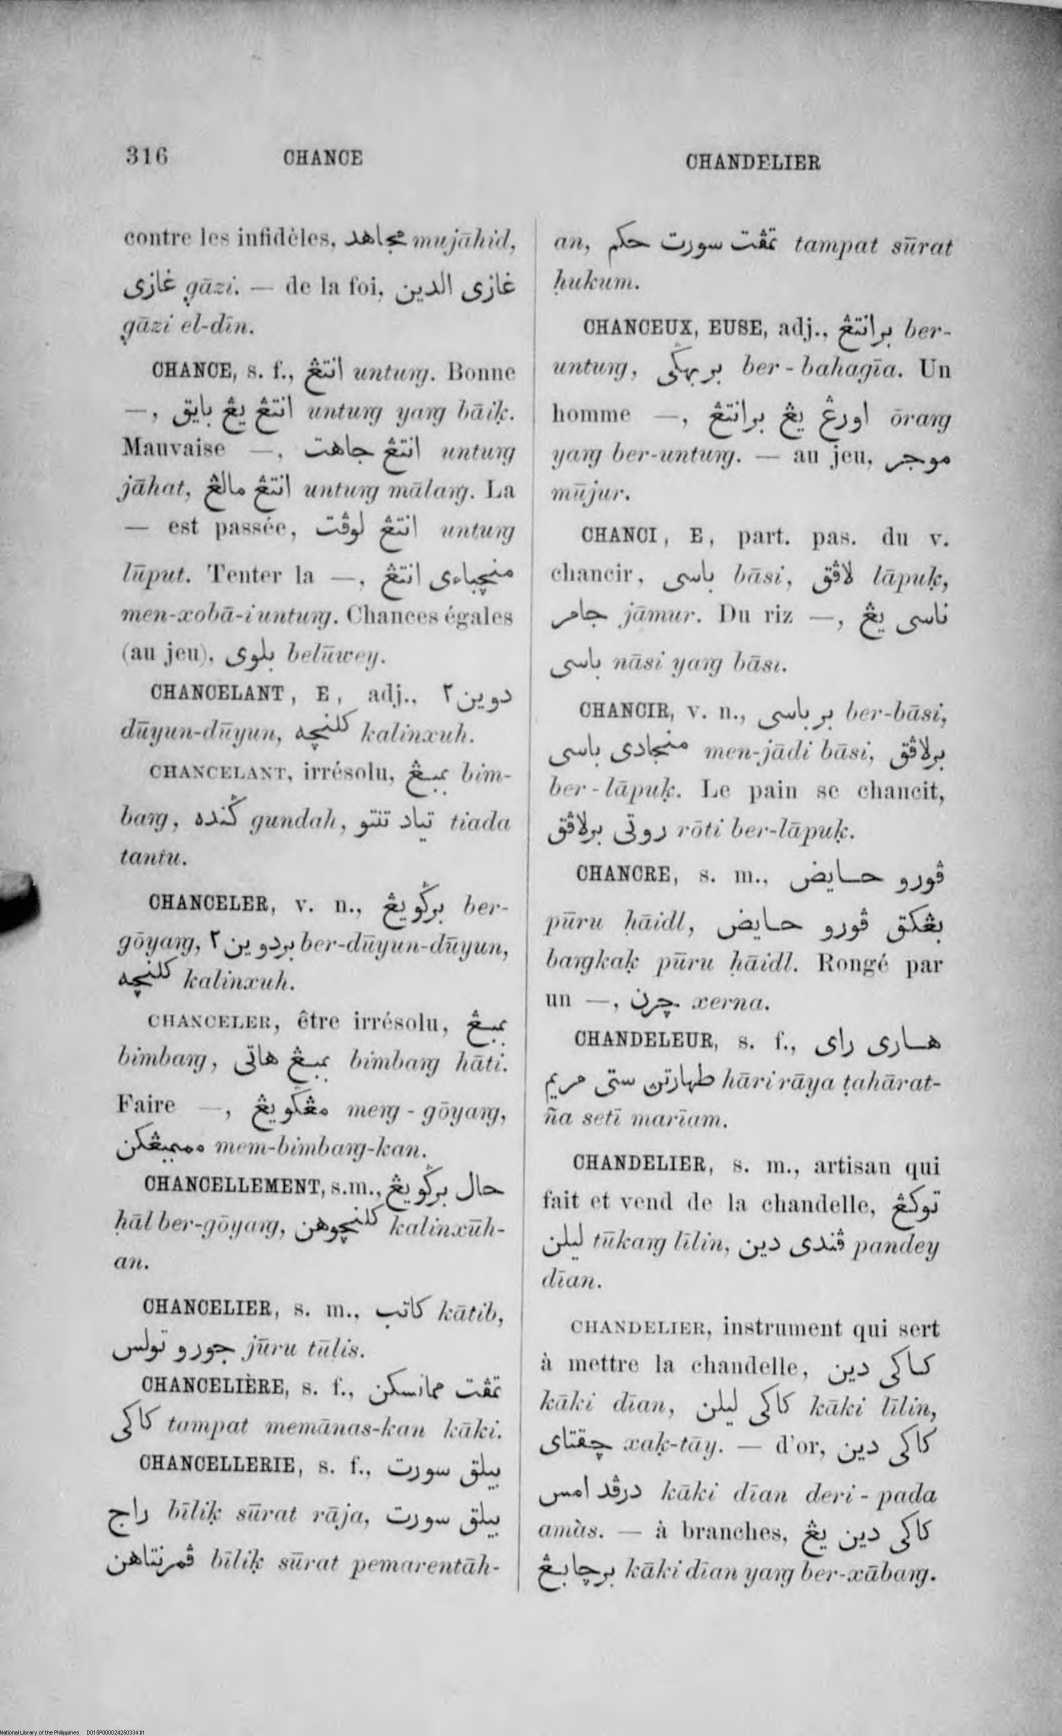 316 CHANCE CHANDELIER
contre les infidèles, مجاهد mujāhid,
غازى g̣āzi. — de la foi, غازى الدين
g̣āzi el-dīn.
CHANCE, s. f., انتڠ untuŋ. Bonne
—, انتڠ يڠ بايق untuŋ yaŋ bāiḳ.
Mauvaise —, انتڠ جاهت untuŋ
jāhat, انتڠ مالڠ untuŋ mālaŋ. La
— est passée, انتڠ لوڤت untuŋ
lūput. Tenter la —, منچباءى انتڠ
men-xobā-i untuŋ. Chances égales
(au jeu), بلوى belūwey.
CHANCELANT, E, adj., دوين٢
dūyun-dūyun, كلنچه kalinxuh.
CHANCELANT, irrésolu, بمبڠ bim-
baŋ, ݢنده gundah, تياد تنتو tiada
tantu.
CHANCELER, v. n., برݢويڠ ber-
gōyaŋ, بردوين٢ ber-dūyun-dūyun,
كلنچه kalinxuh.
CHANCELER, être irrésolu, بمبڠ
bimbaŋ, بمبڠ هاتى bimbaŋ hāti.
Faire —, مڠݢويڠ meŋ-gōyaŋ,
ممبمبڠكن mem-bimbaŋ-kan.
CHANCELLEMENT, s.m., حال برݢويڠ
ḥāl ber-gōyaŋ, كلنچوهن kalinxūh-
an.
CHANCELIER, s. m., كاتب kātib,
جورو تولس jūru tūlis.
CHANCELIÈRE, s. f., تمڤت ممانسكن
كاكى tampat memānas-kan kāki.
CHANCELLERIE, s. f., بيلق سورت
راج bīliḳ sūrat rāja, بيلق سورت
ڤمرنتاهن bīliḳ sūrat pemarentāh-
an, تمڤت سورت حكم tampat sūrat
ḥukum.
CHANCEUX, EUSE, adj., برانتڠ ber-
untuŋ, بربهݢى ber-bahagīa. Un
homme —, اورڠ يڠ برانتڠ ōraŋ
yaŋ ber-untuŋ. — au jeu, موجر
mūjur.
CHANCI, E, part. pas. du v.
chancir, باسى bāsi, لاڤق lāpuḳ,
جامر jāmur. Du riz —, ناسى يڠ
باسى nāsi yaŋ bāsi.
CHANCIR, v. n., برباسى ber-bāsi,
منجادى باسى men-jādi bāsi, برلاڤق
ber-lāpuḳ. Le pain se chancit,
روتى برلاڤق rōti ber-lāpuḳ.
CHANCRE, s. m., ڤورو حايض
pūru ḥāidl, بڠكق ڤورو حايض
baŋkaḳ pūru ḥāidl. Rongé par
un —, چرن xerna.
CHANDELEUR, s. f., هارى راى
طهارتن ستى مريم hāri rāya ṭahārat-
ña setī marīam.
CHANDELIER, s. m., artisan qui
fait et vend de la chandelle, توكڠ
ليلن tūkaŋ līlin, ڤندى دين pandey
dīan.
CHANDELIER, instrument qui sert
à mettre la chandelle, كاكى دين
kāki dīan, كاكى ليلن kāki līlin,
چقتاى xaḳ-tāy. — d'or, كاكى دين
درڤد امس kāki dīan deri-pada
amàs. — à branches, كاكى دين يڠ
برچابڠ kāki dīan yaŋ ber-xābaŋ.
National Library of the Philippines